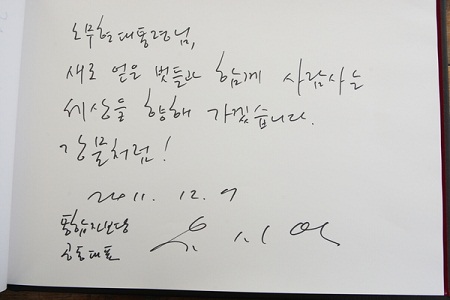 노무현대통령님,
새로 얻은 벗들과 함께 사람사는
세상을 향해 가겠습니다.
강물처럼!
2011. 12. 9
통합진보당
공동대표 유시민